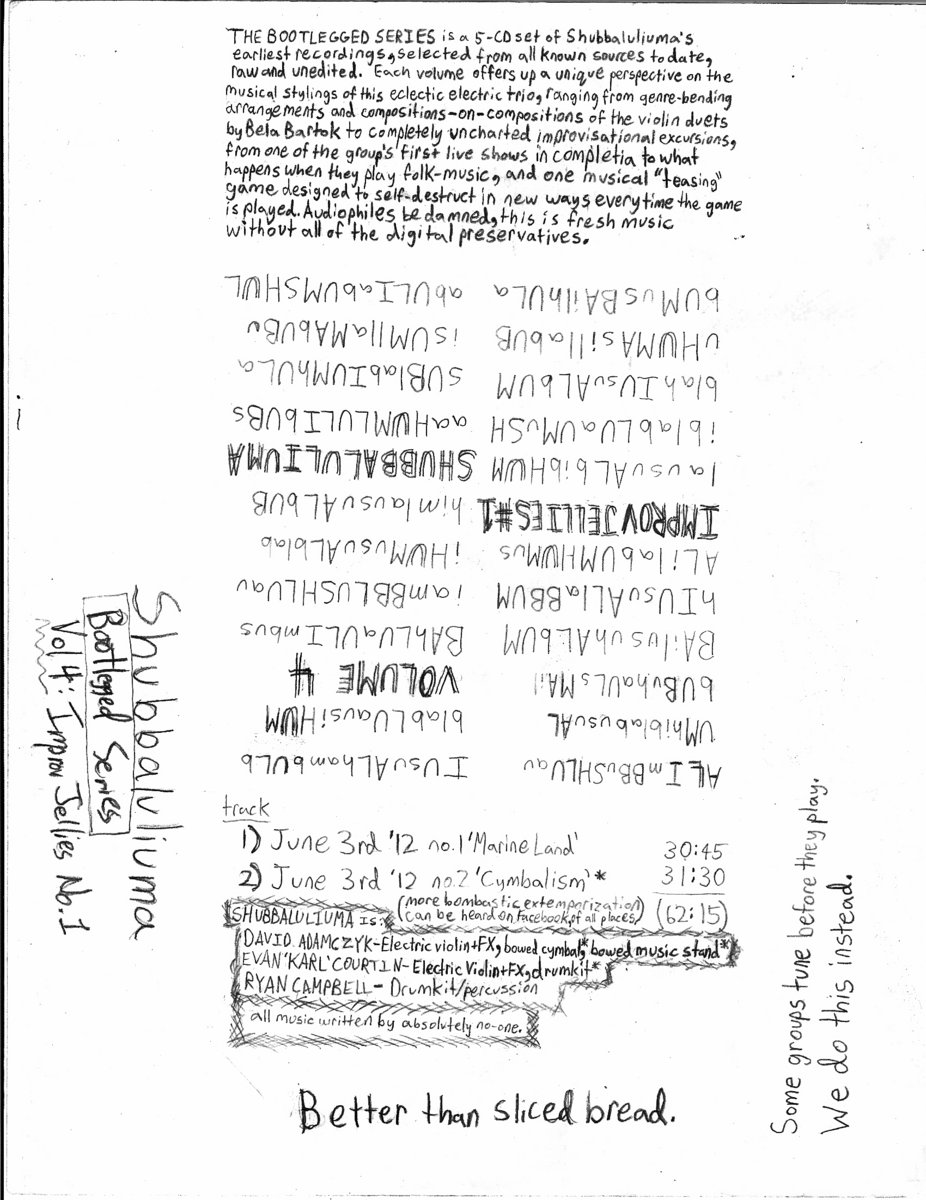 THE BOOTLEGGED SERIES is a 5-CD set of Shubbaluliuma's
earliest recordings, selected from all known sources to date,
raw and unedited. Each volume offers up a unique perspective on the
musical stylings of this eclectic electric trio, ranging from genre-bending
arrangements and compositions-on-compositions of the violin duets
by Bela Bartok to completely uncharted improvisational excursions,
from one of the group's first live shows in completia to what
happens when they play folk-music, and one musical "teasing"
game designed to self-destruct in new ways everytime the game
is played. Audiophiles be damned, this is fresh music
without all of the digital preservatives.
ALImBBuSHLUau IUsuALhambuLb
UMhiblabusuAL blabLUausiHUM
bUBuhauLsMAil VOLUME 4
BAilusuhALbUM BAhLUaULImbus
hIUsuALlaBBUM iamBBLUSHLUau
ALilabUMHUMus iHUMusuALblab
IMPROV JELLIES #1 himlausuALbUB
lausuALbibHUM SHUBBALULIUMA
iblabLUauMuSH aaHUMLULIbUBs
blahIUsuALbUM SUBlabIUMhULa
uHUMAsillabUB iSUMllaMAbUBu
bUMusBAilhULa abULIabUMSHUL
track
1) June 3rd '12 no.1 'Marine Land' 30:45
2) June 3rd '12 no.2 'Cymbalism'* 31:30
(more bombastic extemporization
can be heard on Facebook, of all places) (62:15)
SHUBBALULIUMA is:
DAVID ADAMCZYK-Electric violin+FX, bowed cymbal,* bowed music stand*
EVAN 'KARL' COURTIN-Electric Violin+FX, drumkit*
RYAN CAMPBELL-Drumkit/percussion
all music written by absolutely no-one.
Better than sliced bread.
Shubbaluliuma
Bootlegged Series
Vol 4: Improv Jellies No.1
Some groups tune before they play.
We do this instead.